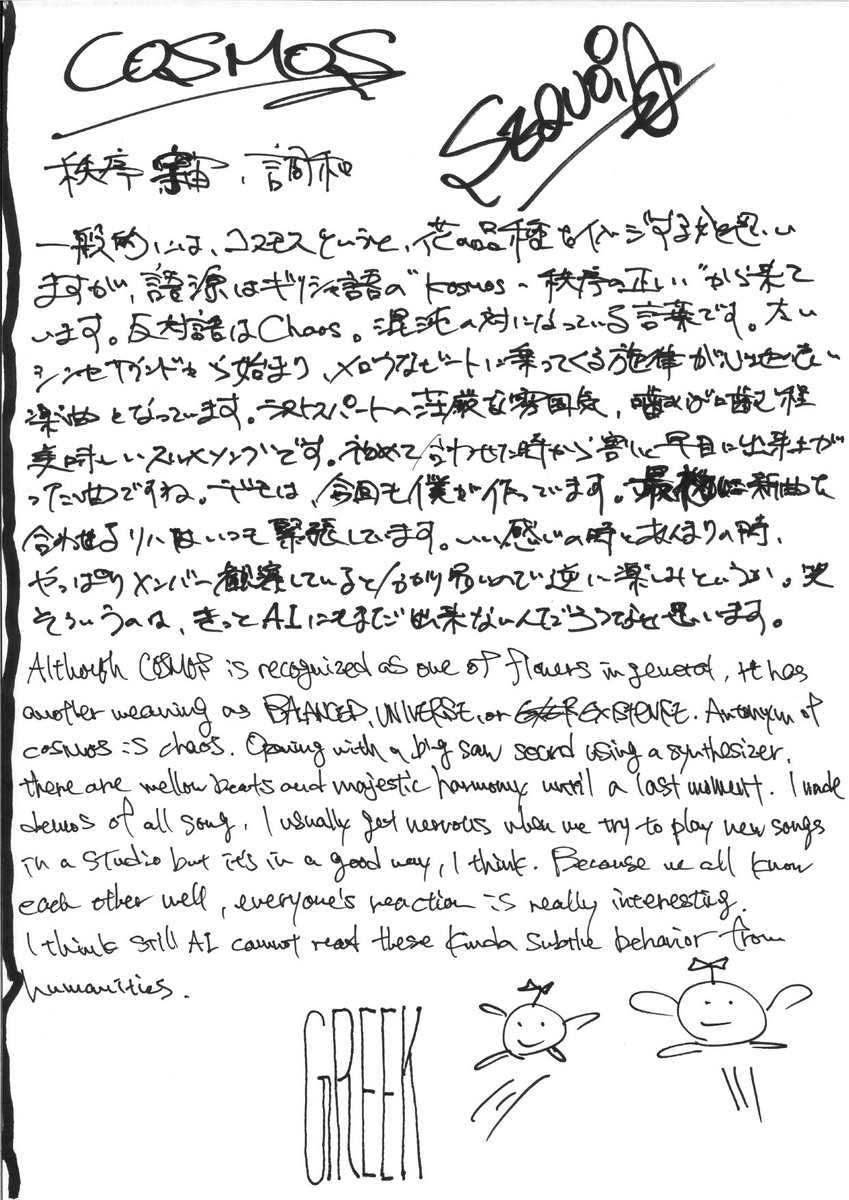 COSMOS
Sequoia
秩序 宇宙、調和
一般的には、コスモスというと、花の品種をイメージするかと思い
ますが、語源はギリシャ語の"kosmos〜秩序の正しい"から来て
います。反対語はChaos。混沌の対になっている言葉です。太い
シンセサウンドから始まり、メロウなビートに乗ってくる旋律が心地良い
楽曲となっています。ラストスパートの荘厳な雰囲気、噛めば噛む程
美味しいスルメソングです。初めて合わせた時から割と早目に出来上が
った曲ですね。デモは、今回も僕が作っています。最初に新曲を
合わせるリハはいつも緊張しています。いい感じの時とあんまりの時、
やっぱりメンバー観察していると分かり易いので逆に楽しみというか。笑
そういうのは、きっとAIにもまだ出来ないんだろうなと思います。
Although COSMOS is recognized as one of flowers in general, it has
another meaning as BALANCED, UNIVERSE, or EXISTENSE. Antonym of
cosmos is chaos. Opening with a big saw sound using a synthesizer.
there are mellow beats and majestic harmony until a last moment. I made
demos of all song. I usually get nervous when we try to play new songs
in a studio but it's in a good way, I think. Because we all know
each other well, everyone's reaction is really interesting.
I think still AI cannot read these kinda subtle behavior from
humanities.
GREEK